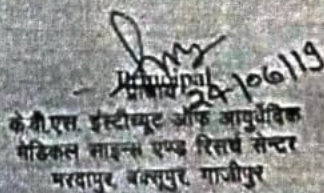 Principal
24/06/19
के.वी.एस. इंस्टीच्यूट ऑफ आयुर्वेदिक
मेडिकल साइन्स एण्ड रिसर्च सेन्टर
मरदापुर, बक्सूपुर, गाजीपुर